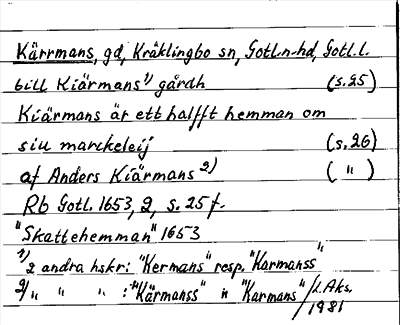 Kärrmans, gd, Kräklingbo sn, Gotl.n-hd, Gotl.l.
till Kiärmans 1) gårdh (s.25)
Kiärmans är ett halfft hemman om
siu marckeleij (s.26)
af Anders Kiärmans 2) ( " )
Rb Gotl. 1653, 2, s. 25 f.
"Skattehemman" 1653
1) 2 andra hskr: "Kermans" resp. "Karmanss"
2) " " " : "Kärmanss" " "Karmans" / L.Aks.
1981